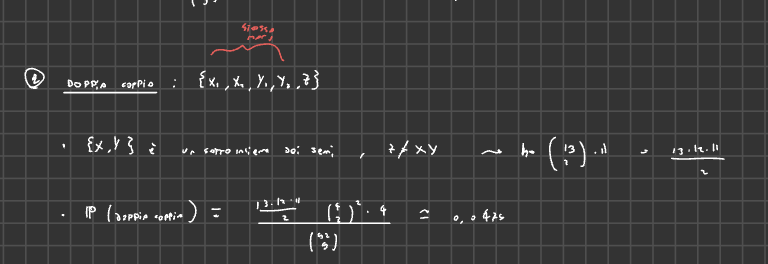 ② Doppia coppia : {X₁, X₂, Y₁, Y₂, Z}
· {X,Y} è un sottoinsieme dei semi, Z ≠ X Y ⇝ ho (13 2) · 11 = 13·12·11 / 2
· ℙ(doppia coppia) = 13·12·11 / 2 (4 2)² · 4 / (52 5) ≅ 0,0475